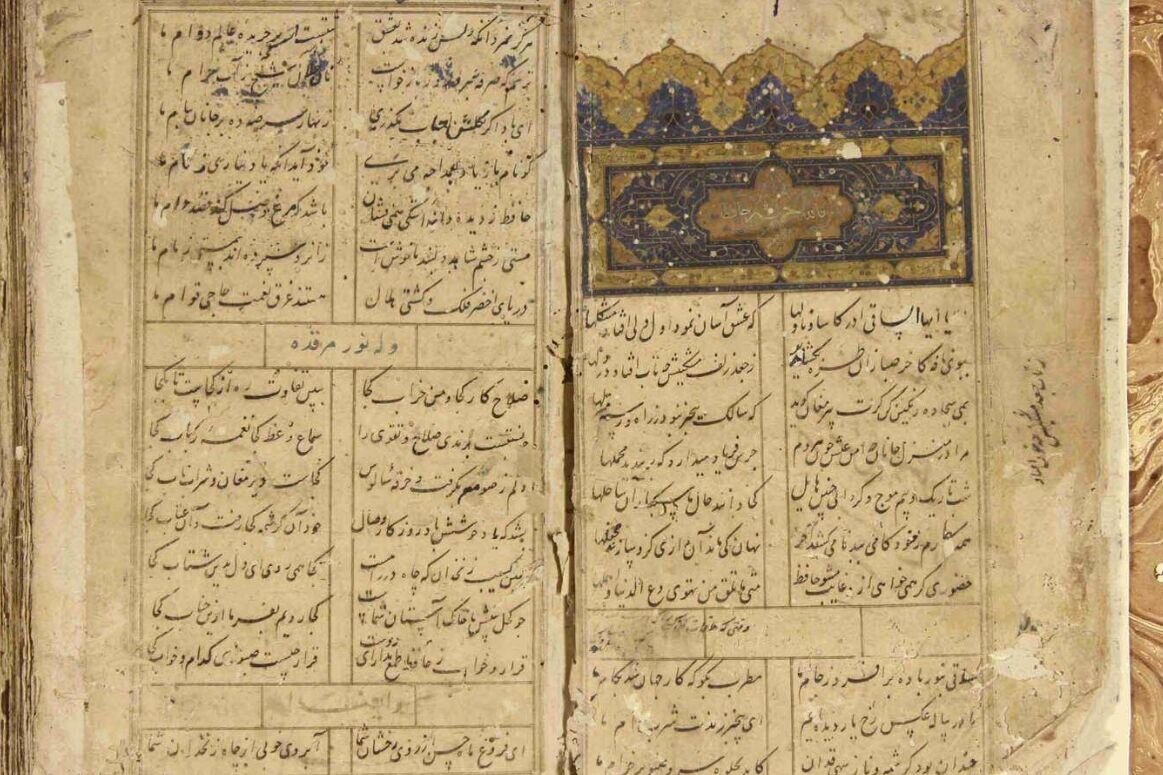 الا یا ایها الساقی ادر کاسا و ناولها که عشق آسان نمود اول ولی افتاد مشکلها
ببوی نافه کاخر صبا زان طره بگشاید ز جعد زلف مشکینش چه تاب افتاد در دلها
بمی سجاده رنگین کن گرت پیر مغان گوید که سالک بیخبر نبود ز راه و رسم منزلها
مرا در منزل جانان چه امن عیش چون هر دم جرس فریاد میدارد که بربندید محملها
شب تاریک و بیم موج و گردابی چنین هایل کجا دانند حال ما سبکباران ساحلها
همه کارم ز خود کامی ببدنامی کشید آخر نهان کی ماند آن رازی کزو سازند محفلها
حضوری گر همی خواهی ازو غایب مشو حافظ متی ما تلق من تهوی دع الدنیا و اهملها
ساقی بنور باده برافروز جام ما مطرب بگو که کار جهان شد بکام ما
ما در پیاله عکس رخ یار دیده ایم ای بیخبر ز لذت شرب مدام ما
چندان بود کرشمه و ناز سهی قدان کاید بجلوه سرو صنوبر خرام ما
هرگز نمیرد آنکه دلش زنده شد بعشق ثبت است بر جریده عالم دوام ما
ترسم که صرفه نبرد روز بازخواست نان حلال شیخ ز آب حرام ما
ای باد اگر بگلشن احباب بگذری زنهار عرضه ده بر جانان پیام ما
گو نام ما ز یاد بعمدا چه می بری خود آید آنکه یاد نیاری ز نام ما
حافظ ز دیده دانه اشکی همی فشان باشد که مرغ وصل کند قصد دام ما
مستی بچشم شاهد دلبند ما خوش است زانرو سپرده اند بمستی زمام ما
دریای اخضر فلک و کشتی هلال هستند غرق نعمت حاجی قوام ما
وله نور مرقده
صلاح کار کجا و من خراب کجا ببین تفاوت ره از کجاست تا بکجا
چه نسبتست برندی صلاح و تقوی را سماع وعظ کجا نغمه رباب کجا
دلم ز صومعه بگرفت و خرقه سالوس کجاست دیر مغان و شراب ناب کجا
بشد که یاد خوشش باد روزگار وصال خود آن کرشمه کجا رفت و آن عتاب کجا
مبین بسیب زنخدان که چاه در راه است کجا همی روی ای دل بدین شتاب کجا
چو کحل بینش ما خاک آستان شماست کجا رویم بفرما ازین جناب کجا
قرار و خواب ز حافظ طمع مدار ای دوست قرار چیست صبوری کدام و خواب کجا
ای فروغ ماه حسن از روی رخشان شما آبروی خوبی از چاه زنخدان شما